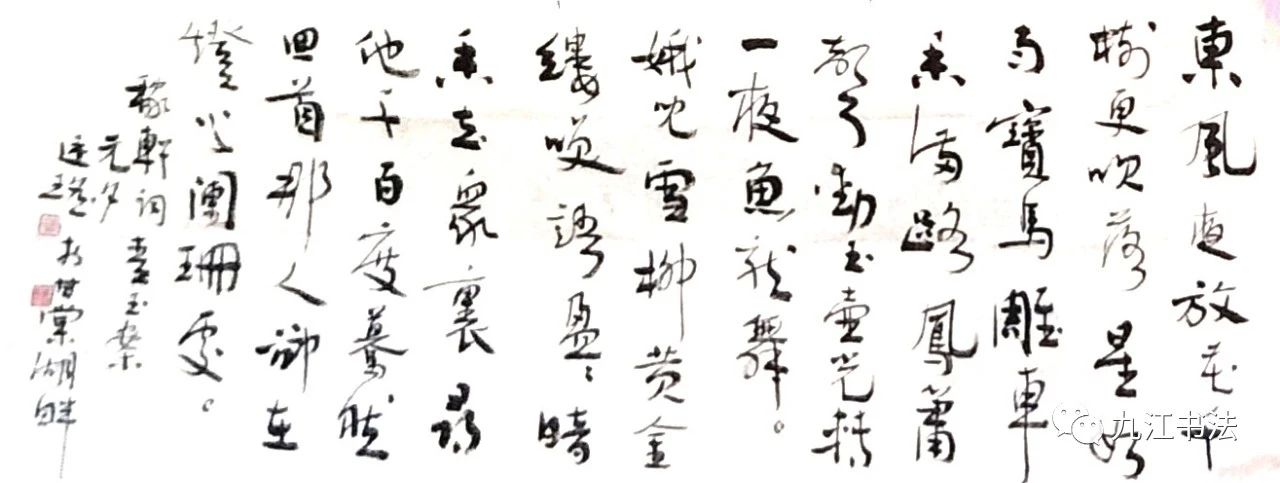 東風夜放花千
樹更吹落星如
雨寶馬雕車
香滿路鳳簫
聲動玉壺光轉
一夜魚龍舞。
娥兒雪柳黄金
縷笑語盈〻暗
香去衆裏尋
他千百度驀然
回首那人卻在
燈火闌珊處。
稼軒詞青玉案
元夕
於甘棠湖畔
九江书法